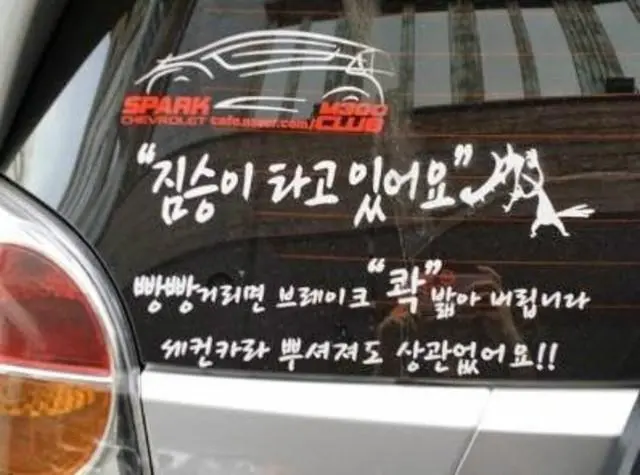 SPARK M300
CHEVROLET cafe.naver.com/ CLUB
"짐승이 타고 있어요"
빵빵거리면 브레이크 "콱" 밟아 버립니다
세컨카라 뿌셔져도 상관없어요!!